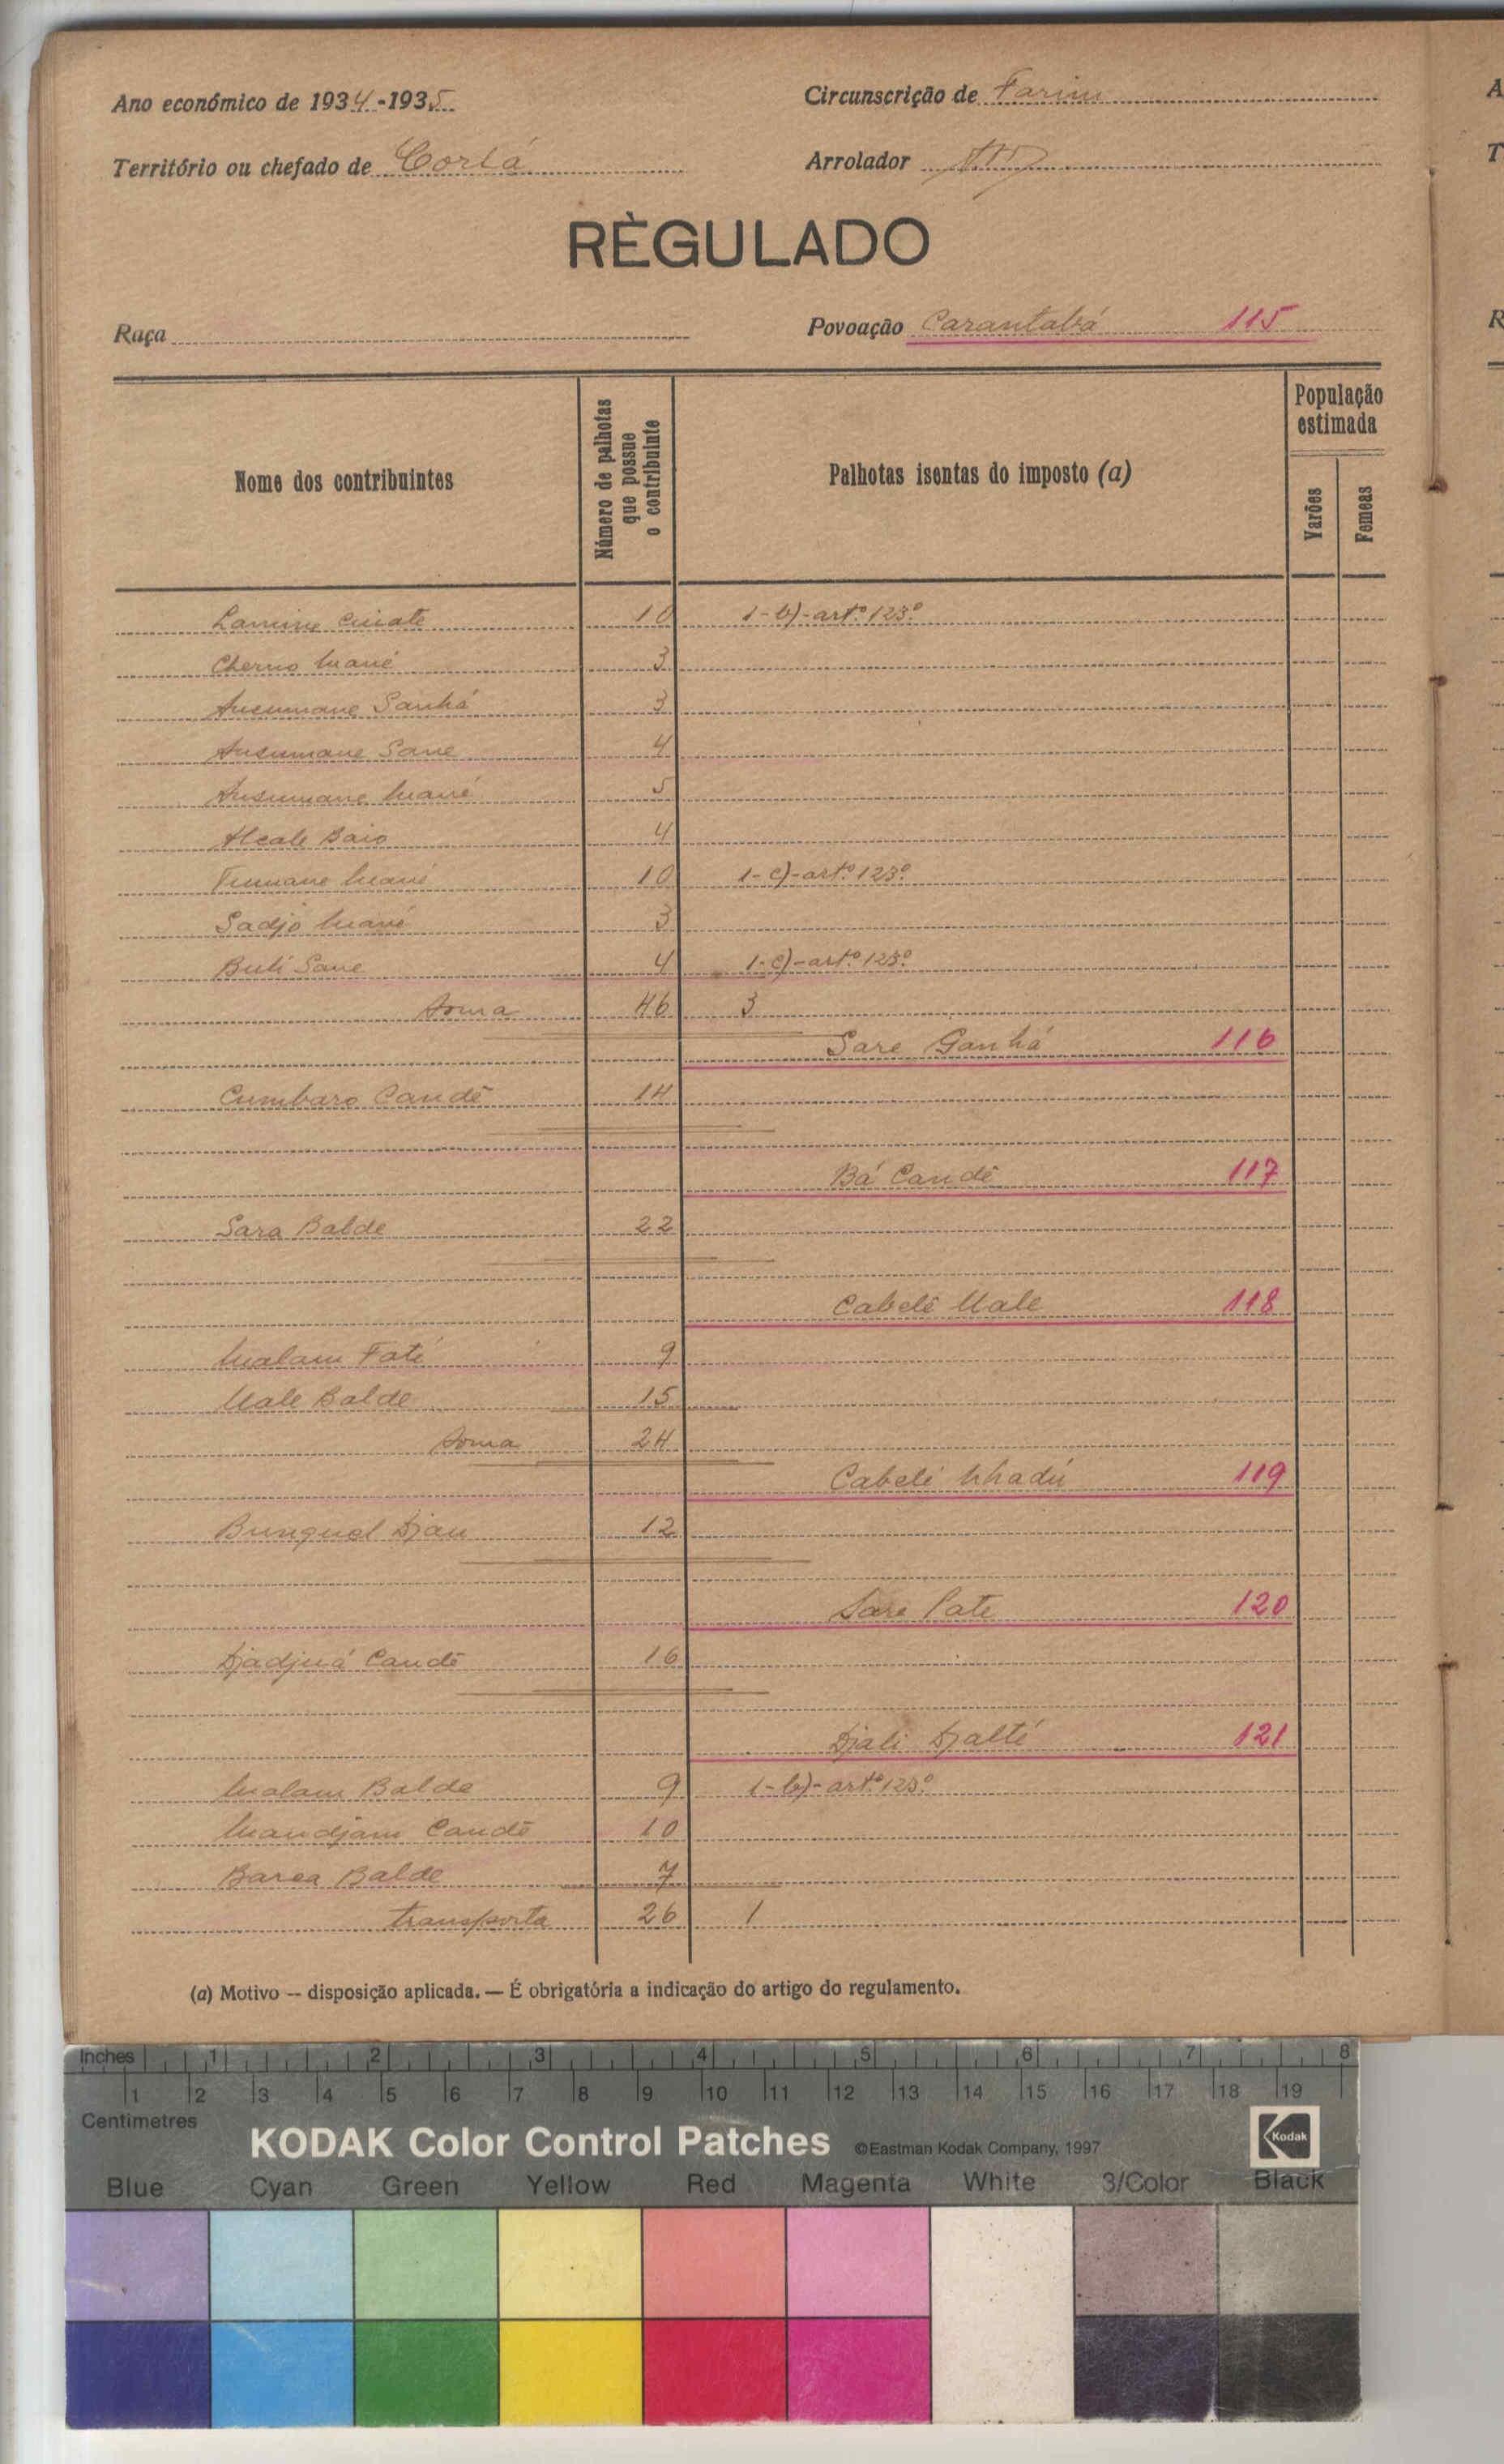 Ano económico de 1934-1935
Circunscrição de Farim
Território ou chefado de Corlá
Arrolador
RÈGULADO
Raça
Povoação Carantabá 115
Nome dos contribuintes
Número de palhotas que possue o contribuinte
Palhotas isentas do imposto (a)
População estimada
Varões
Femeas
Lamine 10 1-b)-artº 123º
Cherno Mané 3
Ansumane Sanhá 3
Ansumane Sane 4
Ansumane Mané 5
Alcale Baio 4
Mané 10 1-c)-artº 123º
Sadjo Mané 3
Buli Sane 4 1-c)-artº 123º
Soma 46 3
Sare Ganhá 116
Cumbaro Candê 14
Bá Candê 117
Sara Balde 22
Cabelé Uale 118
Malam Fati 9
Uale Balde 15
Soma 24
Cabelé Nhadú 119
Bunquel Djau 12
Sare Pate 120
Djadjuá Candê 16
Djali Djalté 121
Malam Balde 9 1-b)-artº 123º
Mandjam Candê 10
Barca Balde 7
transporta 26 1
(a) Motivo -- disposição aplicada. — É obrigatória a indicação do artigo do regulamento.
Inches 1 2 3 4 5 6 7 8
1 2 3 4 5 6 7 8 9 10 11 12 13 14 15 16 17 18 19
Centimetres
KODAK Color Control Patches ©Eastman Kodak Company, 1997 Kodak
Blue Cyan Green Yellow Red Magenta White 3/Color Black